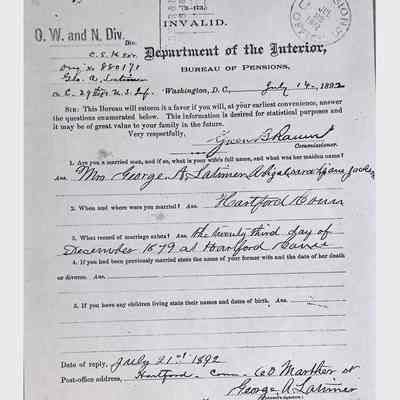 (3-173.)
INVALID.
O. W. and N. Div.
Div.
Department of the Interior,
Orig. No. 880171
BUREAU OF PENSIONS,
Geo. A. Latimer
Co. C. 29th U.S. Inf. Washington, D. C., July 14, 1892
SIR: This Bureau will esteem it a favor if you will, at your earliest convenience, answer
the questions enumerated below. This information is desired for statistical purposes and
it may be of great value to your family in the future.
Very respectfully,
Green B Raum
Commissioner.
1. Are you a married man, and if so, what is your wife's full name, and what was her maiden name?
Ans. Mrs George A. Latimer
2. When and where were you married? Ans. Hartford Conn
3. What record of marriage exists? Ans. the twenty third day of
December 1879 at Hartford Conn
4. If you had been previously married state the name of your former wife and the date of her death
or divorce. Ans.
5. If you have any children living state their names and dates of birth. Ans.
Date of reply, July 21st 1892
Post-office address, Hartford Conn 60 st
George A. Latimer